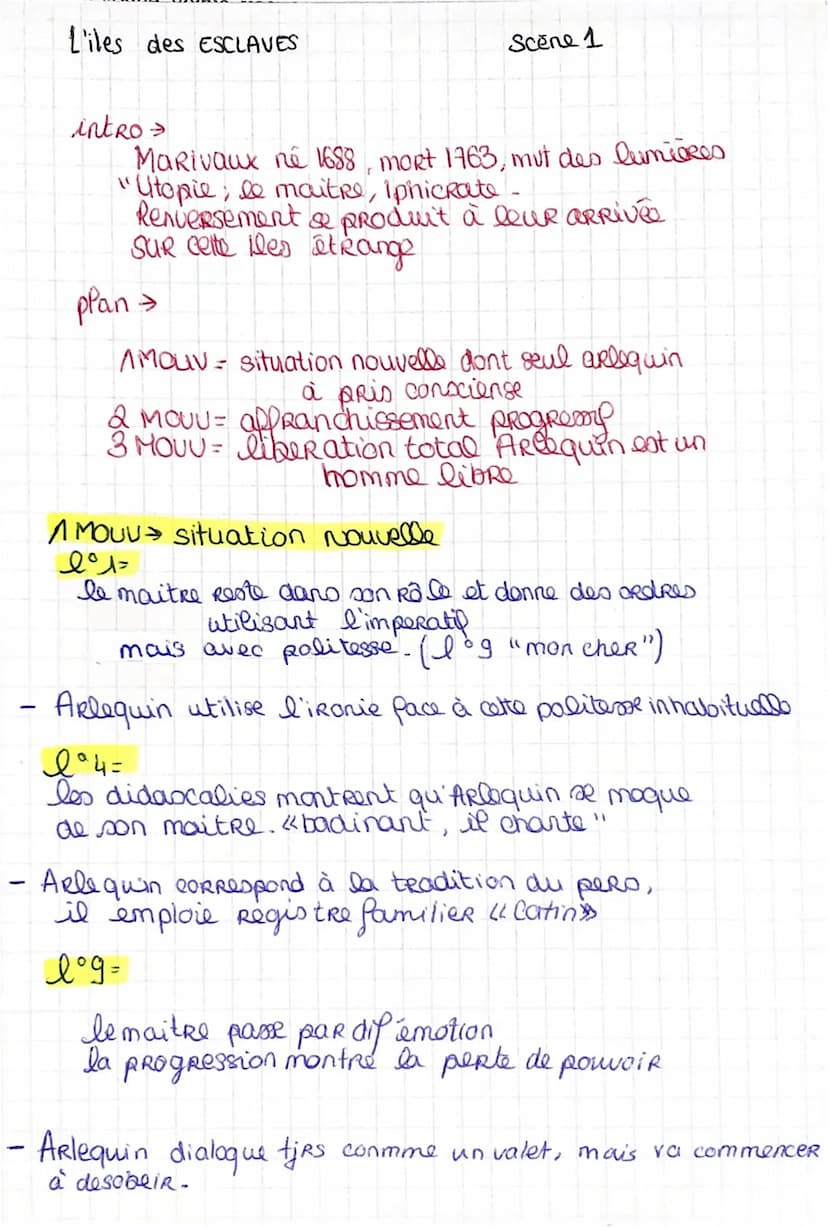 L'iles des ESCLAVES Scène 1
intro →
Marivaux né 1688, mort 1763, mvt des lumières
"Utopie ; le maitre, Iphicrate -
Renversement se produit à leur arrivée
sur cette iles étrange
plan →
1 MOUV = situation nouvelle dont seul arlequin
à pris consciense
2 MOUV = affranchissement progressif
3 MOUV = liberation total Arlequin est un
homme libre
1 MOUV → situation nouvelle
l°1=
le maitre reste dans son rôle et donne des ordres
utilisant l'imperatif
mais avec politesse. (l°9 "mon cher")
- Arlequin utilise l'ironie face à cette politesse inhabituelle
l°4=
les didascalies montrent qu'Arlequin se moque
de son maitre. «badinant, il chante"
- Arlequin correspond à la tradition du pers,
il emploie registre familier «Catin»
l°9=
le maitre passe par dif émotion
la progression montre la perte de pouvoir
- Arlequin dialogue tjrs conmme un valet, mais va commencer
à desobeir.